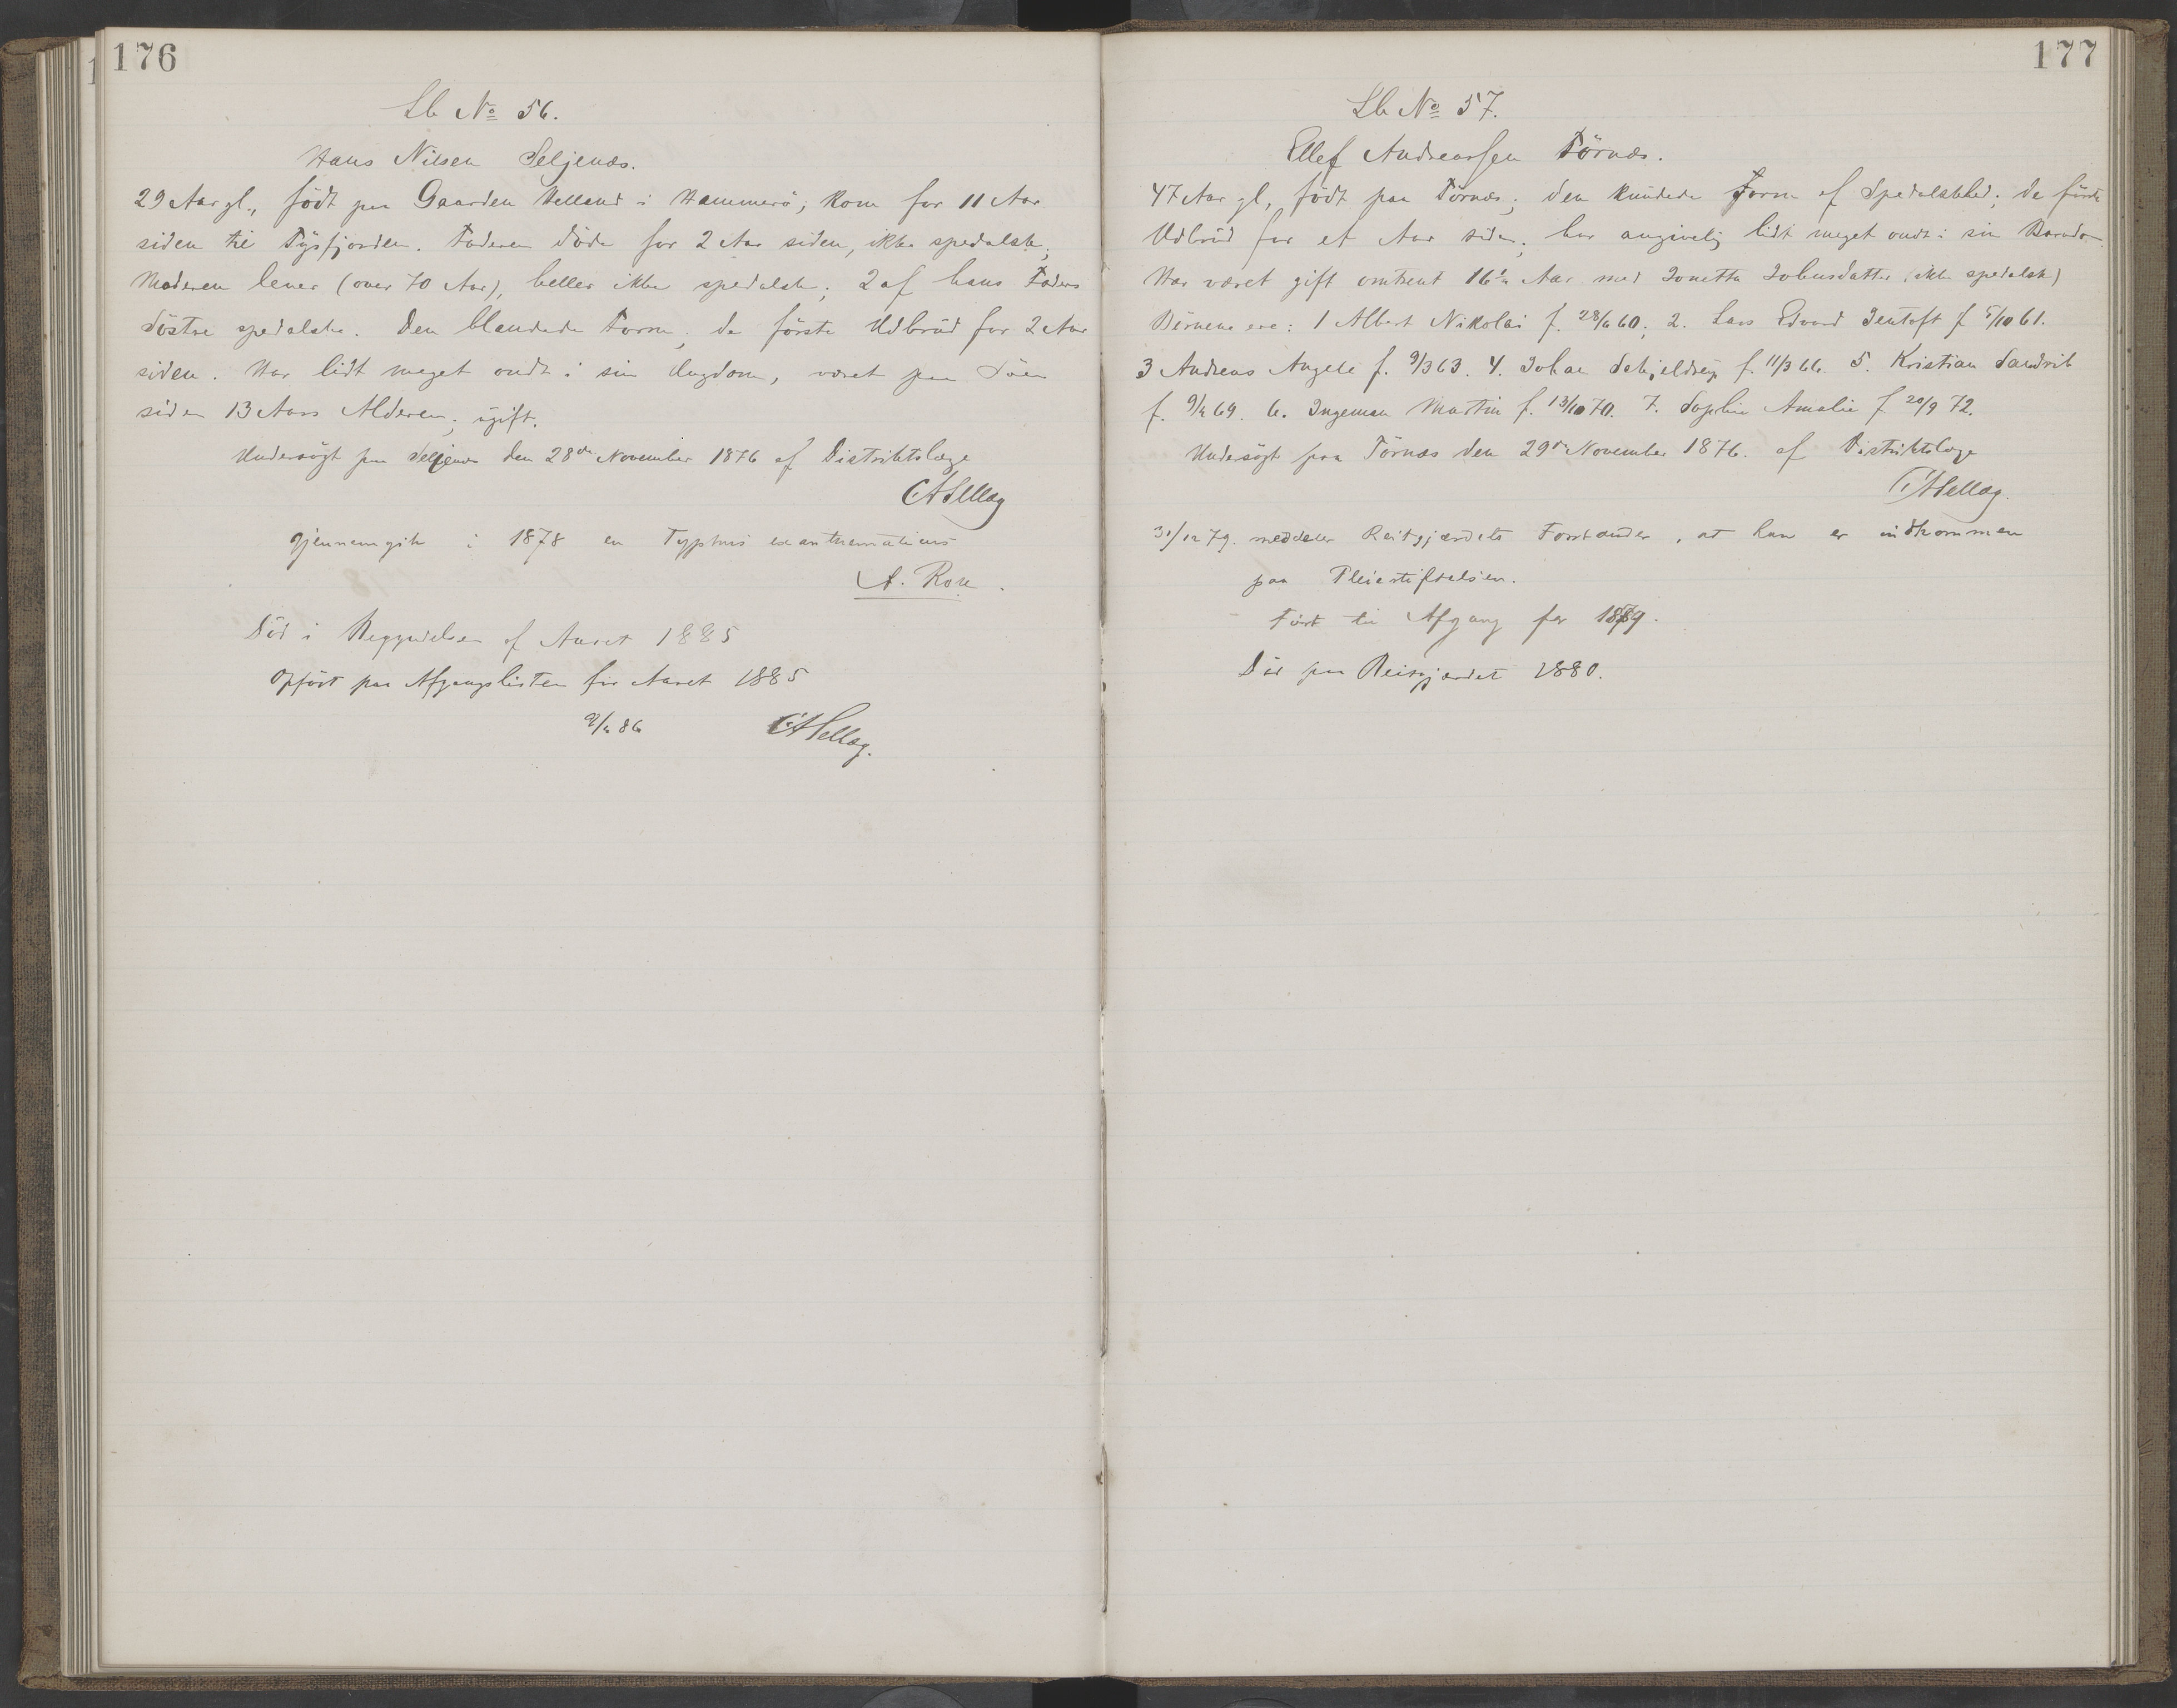 176
Lb No 56.
Hans Nilsen Seljenæs.
29 Aar gl., födt paa Gaarden Helland i Hammerö; kom for 11 Aar
siden til Tysfjorden. Faderen döde for 2 Aar siden, ikke spedalsk;
Moderen lever (over 70 Aar), heller ikke spedalsk; 2 af hans Faders
Söstre spedalske. Den blandede Form; de förste Udbrud for 2 Aar
siden. Har lidt meget ondt i sin Ungdom, været paa Söen
siden 13 Aars Alderen; ugift.
Undersögt paa Seljenæs den 28de November 1876 af Distriktslæge
CASellæg
Gjennemgik i 1878 en Typhus exanthematicus
A. Rose.
Död i Begyndelsen af Aaret 1885
Opfört paa Afgangslisten for Aaret 1885
86 CASellæg.
177
Lb No 57.
Ellef Andreassen Törnæs.
47 Aar gl, födt paa Törnæs; den knudede Form af Spedalskhed; de förste
Udbrud for et Aar siden; har angivelig lidt meget ondt i sin Barndom.
Har været gift omtrent 16½ Aar med Jonetta Johnsdatter (ikke spedalsk)
Börnene ere: 1 Albert Nikolai f. 28/6 60; 2. Lars Edvard Jentoft f 5/10 61.
3 Andreas Angell f. 9/3 63. 4. Johan Schjelderup f. 11/3 66. 5. Kristian
f. 9/2 69. 6. Ingeman Martin f. 13/10 70. 7. Sophie Amalie f. 20/9 72.
Undersögt paa Törnæs den 29de November 1876. af Distriktslæge
CASellæg.
31/12 79. meddeler Reitgjærdets Forstander, at han er indkommen
paa Pleiestiftelsen.
Fört til Afgang for 1879.
Död paa Reitgjærdet 1880.